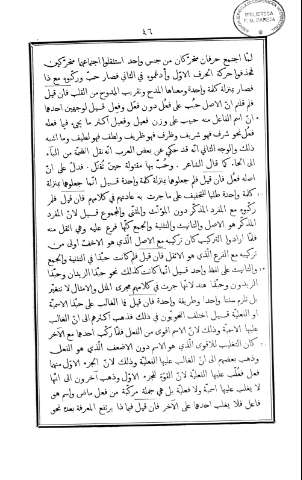 ٤٦
لمّا اجتمع حرفان متحرّكان من جنس واحد استثقلوا اجتماعهما متحرّكين
فحذفوا حركة الحرف الاوّل وادغموه فى الثانى فصار حبّ وركّبوه مع ذا
فصار بمنزلة كلمة واحدة ومعناها المدح وتقريب الممدوح من القلب فان قيل
فلم قلتم انّ الاصل حبب على فعل دون فعل وفعل قيل لوجهين احدهما
انّ اسم الفاعل منه حبيب على وزن فعيل وفعيل اكثر ما يجىء فيما فعله
فعل نحو شرف فهو شريف وظرف فهو ظريف ولطف فهو لطيف وما اشبه
ذلك والوجه الثانى انّه قد حكى عن بعض العرب انّه نقل الضمّة من الباء
الى الحاء كما قال الشاعر وحبّ بها مقتولة حين تقتل فدلّ على انّ
اصله فعل فان قيل فلم جعلوهما بمنزلة كلمة واحدة قيل انّما جعلوهما بمنزلة
كلمة واحدة طلبا للتخفيف على ما جرت به عادتهم فى كلامهم فان قيل فلم
ركّبوه مع المفرد المذكّر دون المؤنّث والمثنّى والمجموع قيل لانّ المفرد
المذكّر هو الاصل والتأنيث والتثنية والجمع كلّها فرع عليه وهى اثقل منه
فلمّا ارادوا التركيب كان تركيبه مع الاصل الّذى هو الاخفّ اولى من
تركيبه مع الفرع الّذى هو الاثقل فان قيل فلم كانت حبّذا فى التثنية والجمع
والتأنيث على لفظ واحد قيل انّما كانت كذلك نحو حبّذا الزيدان وحبّذا
الزيدون وحبّذا هند لانّها جرت فى كلامهم مجرى المثل والامثال لا تتغيّر
بل تلزم سننا واحدا وطريقة واحدة فان قيل فما الغالب على حبّذا الاسميّة
او الفعليّة قيل اختلف النحويّون فى ذلك فذهب اكثرهم الى انّ الغالب
عليها الاسميّة وذلك لانّ الاسم اقوى من الفعل فلمّا ركّب احدهما مع الآخر
كان التغليب للاقوى الّذى هو الاسم دون الاضعف الّذى هو الفعل
وذهب بعضهم الى انّ الغالب عليها الفعليّة وذلك لانّ الجزء الاوّل منهما
فعل فغلّب عليها الفعليّة لانّ القوّة للجزء الاوّل وذهب آخرون الى انّها
لا يغلب عليها اسميّة ولا فعليّة بل هى جملة مركّبة من فعل ماض واسم هو
فاعل فلا يغلب احدهما على الآخر فان قيل فبما ذا يرتفع المعرفة بعده نحو